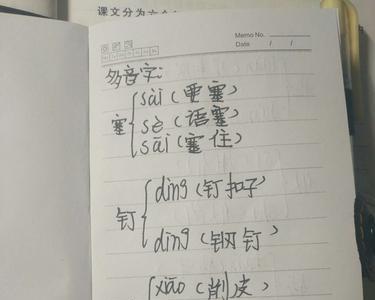 课文分为六个
Memo No.
Date / /
多音字:
sài (要塞)
塞 sè (语塞)
sāi (塞住)
dìng (钉扣子)
钉
dīng (钢钉)
xiāo (削皮)